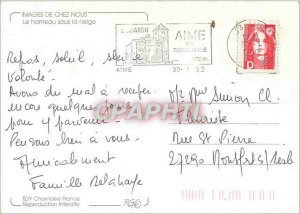 IMAGES DE CHEZ NOUS
Le hameau sous la neige
St MARTIN
AIME
EN
TARENTAISE
AIME
30-1-92
D
Repos, soleil, ski à
volonté.
Avons du mal à
encore quelques jours
pour y parvenir.
Pensons bien à vous.
Amicalement
Famille Delahaye
Simon Cl.
Fleuriste
Rue St Pierre
27290 Montfort s/Risle
EDY Chambéry France
Reproduction Interdite
CPAPHIL